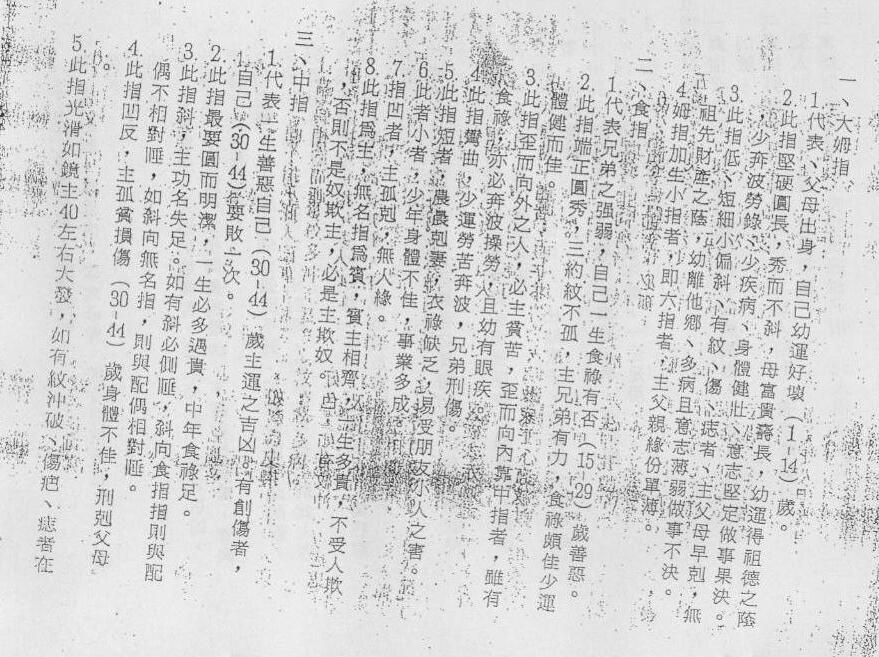 一、大姆指
1代表、父母出身，自己幼運好壞（1-14）歲。
2此指堅硬圓長，秀而不斜，母富貴壽長，幼運得祖德之蔭
，少奔波勞錄、少疾病、身體健壯、意志堅定做事果決。
3此指低、短細小偏斜、有紋、傷、痣者、主父母早剋，無
祖先財產之蔭，幼離他鄉、多病且意志薄弱做事不決。
4姆指加生小指者，即六指者，主父親緣份單薄。
二、食指
1代表兄弟之強弱，自己一生食祿有否（15-29）歲善惡。
2此指端正圓秀，三約紋不孤，主兄弟有力，食祿頗佳少運
體健而佳。
3此指歪而向外之人，必主貧苦，歪而向內靠中指者，雖有
食祿，亦必奔波操勞，且幼有眼疾。
4此指彎曲，少運勞苦奔波，兄弟刑傷。
5此指短者，晨晨剋妻，衣祿缺乏，易受朋友小人之害。
6此者小者，少年身體不佳，事業多成
7指凹者，主孤剋，無人緣。
8此指為主，無名指為賓，賓主相齊，一生多貴，不受人欺
，否則不是奴欺主，必是主欺奴。
三、中指
1代表一生善惡自己（30-44）歲主運之吉凶。有創傷者，
自己（30-44）要敗一次。
2此指最要圓而明潔，一生必多遇貴，中年食祿足。
3此指斜，主功名失足。如有斜必側睡，斜向食指指則與配
偶不相對睡，如斜向無名指，則與配偶相對睡。
4此指凹反，主孤貧損傷（30-44）歲身體不佳，刑剋父母
。
5此指光滑如鏡主40左右大發，如有紋沖破、傷疤、痣者在